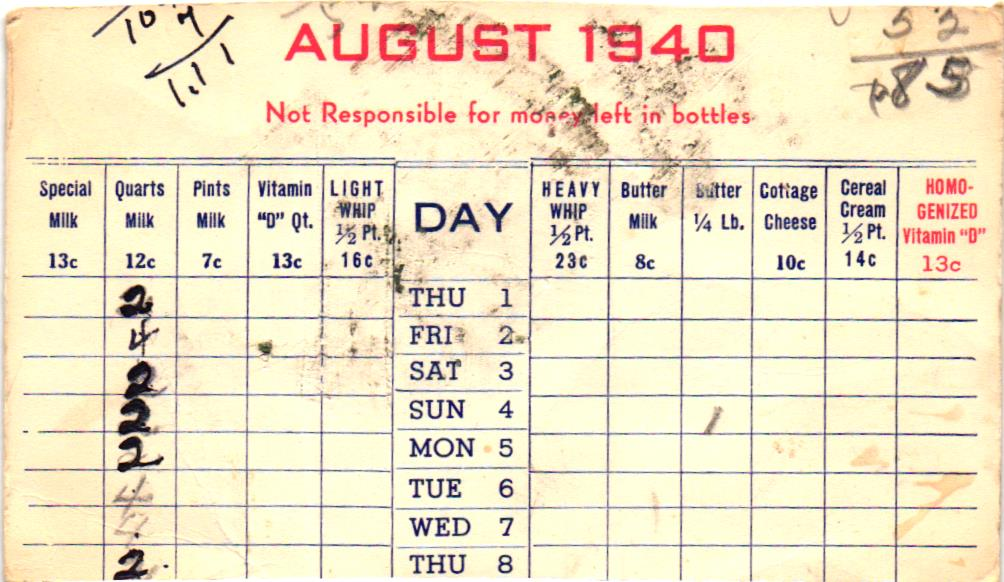 10 7
1.11
5 2
85
AUGUST 1940
Not Responsible for money left in bottles
Special Milk 13c
Quarts Milk 12c
Pints Milk 7c
Vitamin "D" Qt. 13c
LIGHT WHIP ½ Pt. 16c
DAY
HEAVY WHIP ½ Pt. 23c
Butter Milk 8c
Butter ¼ Lb.
Cottage Cheese 10c
Cereal Cream ½ Pt. 14c
HOMO-GENIZED Vitamin "D" 13c
2 THU 1
4 FRI 2
2 SAT 3
2 SUN 4 1
2 MON 5
4 TUE 6
4 WED 7
2 THU 8